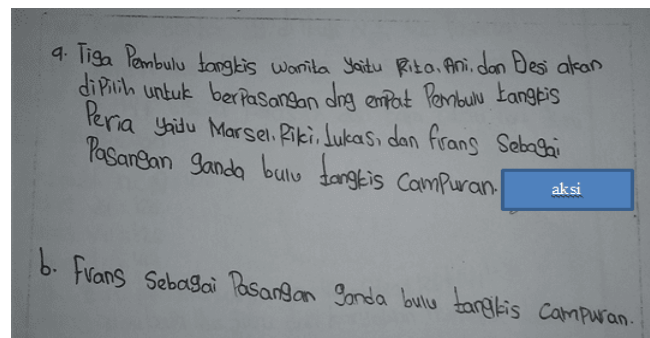 a. Tiga Pembulu tangkis wanita yaitu Rita, Ani, dan Desi akan
diPilih untuk berPasangan dng empat Pembulu tangkis
Peria yaitu Marsel, Riki, Lukas, dan frans Sebagai
Pasangan ganda bulu tangkis CamPuran.
aksi
b. Frans Sebagai Pasangan ganda bulu tangkis CamPuran.